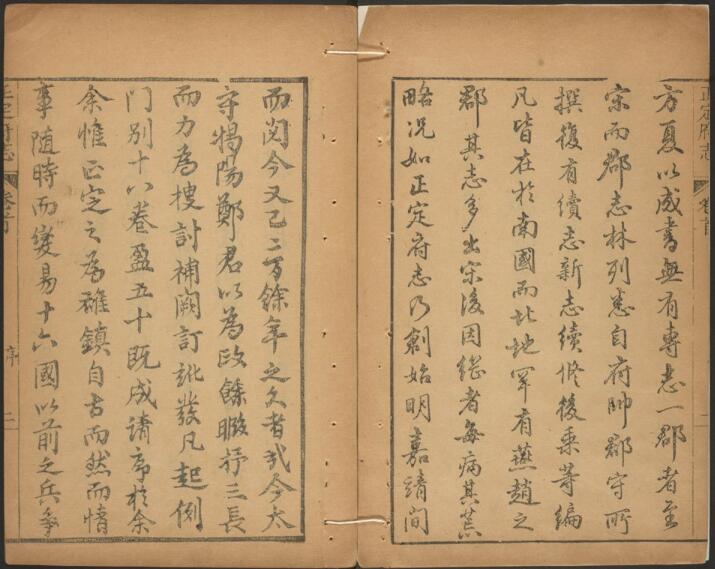 正定府志
卷首
二
方夏以成書無有專志一郡者至
宋而郡志林列悉自府帥郡守所
撰復有續志新志續修後乘等編
凡皆在於南國而北地罕有燕趙之
郡其志多出宋後因繼者每病其荒
略况如正定府志乃創始明嘉靖間
而閱今又已二百餘年之久者哉今太
守揭陽鄭君以為政餘暇抒三長
而力為搜討補闕訂訛發凡起例
門別十八卷盈五十既成請序於余
余惟正定之為雄鎮自古而然而情
事隨時而變易十六國以前之兵爭
正定府志
卷首
序
二